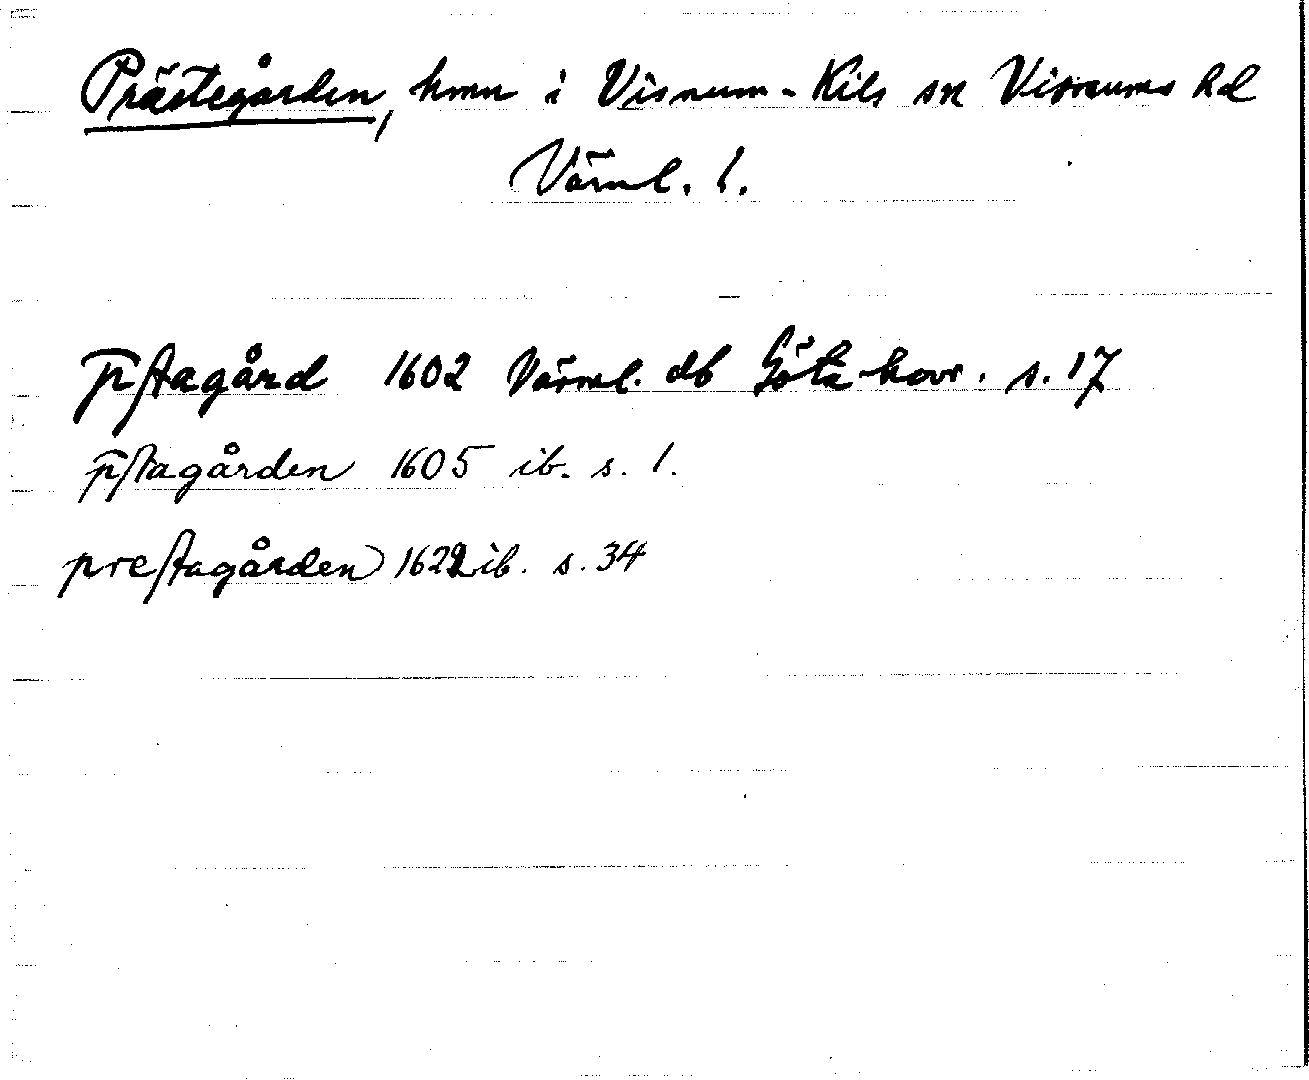 Prästegården, hmn i Visnum-Kils sn Visnums hd
Värml. l.
p̅ſtagård 1602 Värml. db Göta hovr. s. 17
p̅ſtagården 1605 ib. s. 1.
preſtagården 1622 ib. s. 34